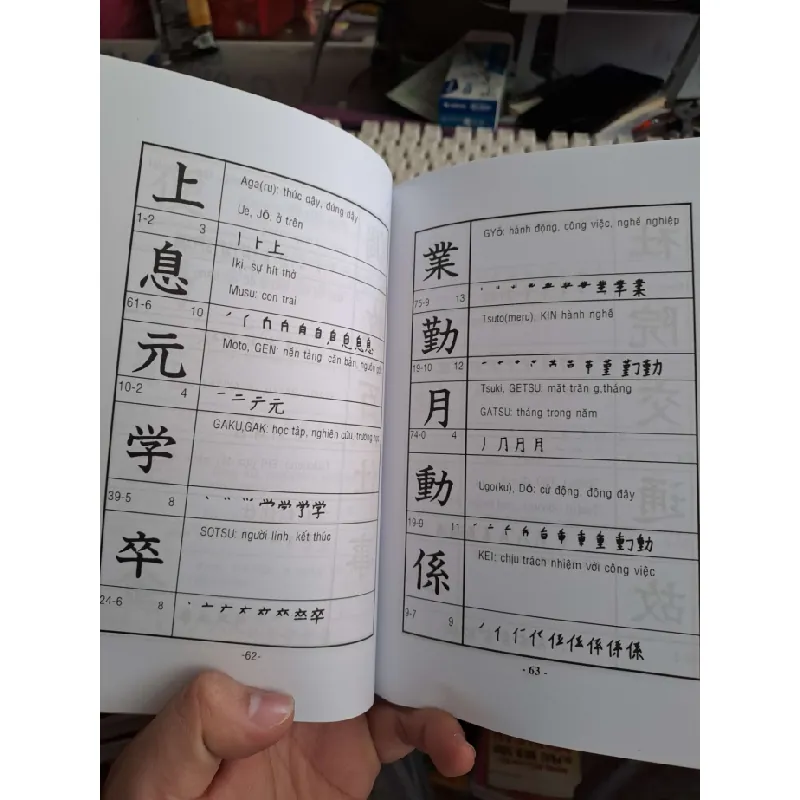 上
Aga(ru): thúc dậy, đứng dậy
Ue, JÔ, ở trên
1-2 3
丨 ト 上
息
Iki, sự hít thở
Musu: con trai
61-6 10
元
Moto, GEN: nền tảng căn bản, nguồn
10-2 4
一 二 テ 元
学
GAKU,GAK: học tập, nghiên cứu, trường
39-5 8
卒
SOTSU: người lính, kết thúc
24-6 8
-62-
業
GYÔ: hành động, công việc, nghề nghiệp
75-9 13
勤
Tsuto(meru), KIN hành nghề
19-10 12
月
Tsuki, GETSU: mặt trăng,tháng
GATSU: tháng trong năm
74-0 4
丿 几 月 月
動
Ugo(ku), DÔ: cử động, động đậy
19-9 11
係
KEI: chịu trách nhiệm với công việc
9-7 9
-63-